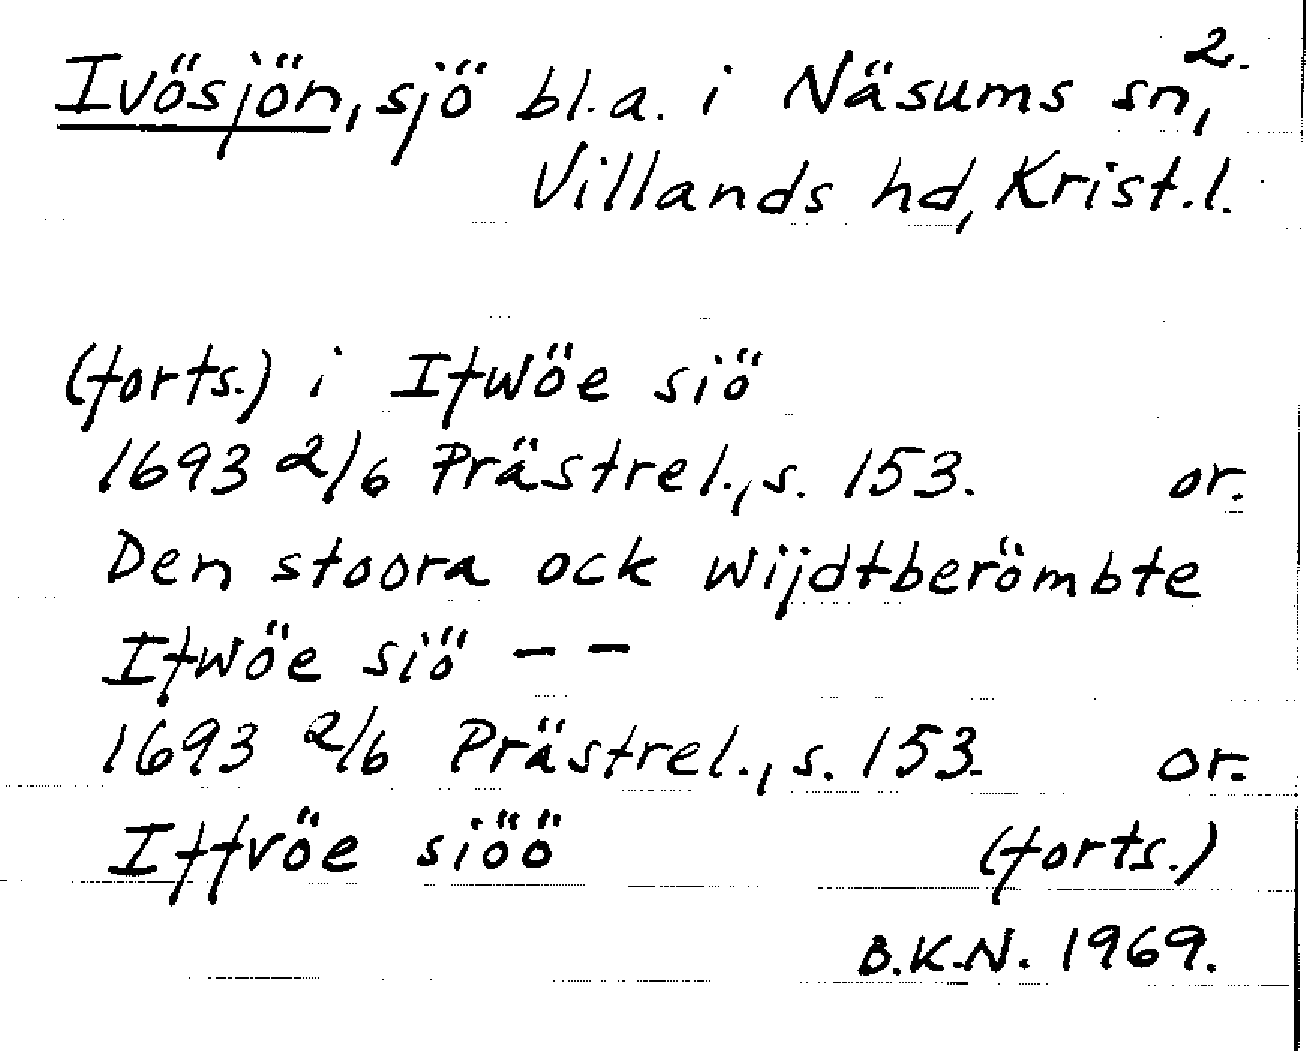 2.
Ivösjön, sjö bl.a. i Näsums sn,
Villands hd, Krist.l.
(forts.) i Ifwöe siö
1693 2/6 Prästrel., s. 153. or.
Den stoora ock wijdtberömbte
Ifwöe siö - -
1693 2/6 Prästrel., s. 153. or.
Iffvöe siöö (forts.)
B.K.N. 1969.